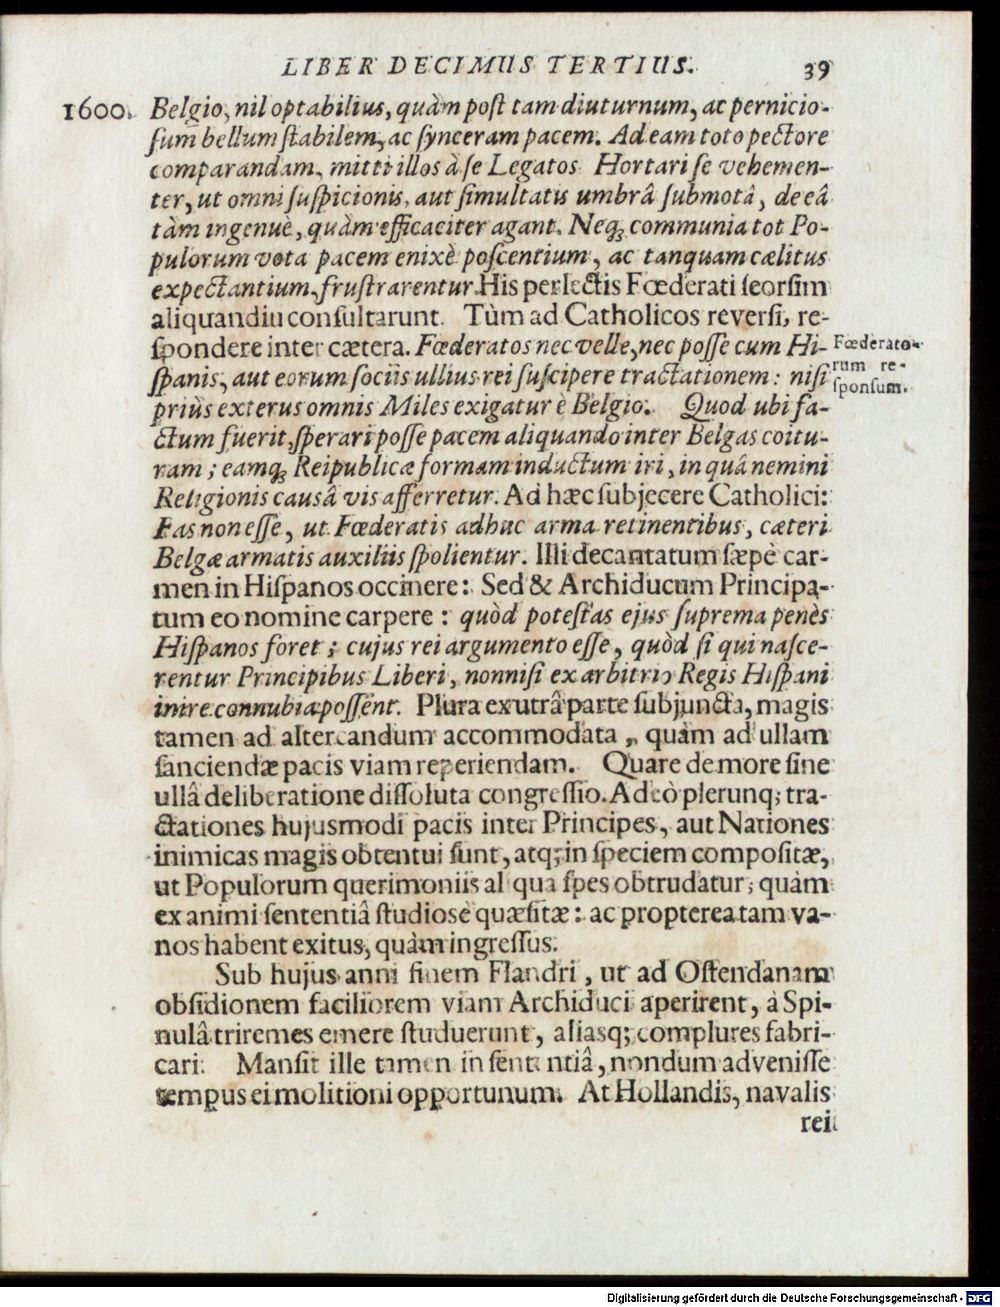 LIBER DECIMUS TERTIUS. 39
1600. Belgio, nil optabilius, quàm post tam diuturnum, ac pernicio-
sum bellum stabilem, ac synceram pacem. Ad eam toto pectore
comparandam, mitti illos à se Legatos. Hortari se vehemen-
ter, ut omni suspicionis, aut simultatis umbrâ submotâ, de eâ
tàm ingenuè, quàm efficaciter agant. Neq; communia tot Po-
pulorum vota pacem enixè poscentium, ac tanquam cælitus
expectantium, frustrarentur. His perlectis Fœderati seorsim
aliquandiu consultarunt. Tùm ad Catholicos reversi, re-
spondere inter cætera. Fœderatos nec velle, nec posse cum Hi-
spanis, aut eorum sociis ullius rei suscipere tractationem: nisi
priùs exterus omnis Miles exigatur è Belgio. Quod ubi fa-
ctum fuerit, sperari posse pacem aliquando inter Belgas coitu-
ram; eamq; Reipublicæ formam inductum iri, in quâ nemini
Religionis causâ vis afferretur. Ad hæc subjecere Catholici:
Fas non esse, ut Fœderatis adhuc arma retinentibus, cæteri
Belgæ armatis auxiliis spolientur. Illi decantatum sæpè car-
men in Hispanos occinere: Sed & Archiducum Principa-
tum eo nomine carpere: quòd potestas ejus suprema penès
Hispanos foret; cujus rei argumento esse, quòd si qui nasce-
rentur Principibus Liberi, nonnisi ex arbitrio Regis Hispani
inire connubia possent. Plura ex utrâ parte subjuncta, magis
tamen ad altercandum accommodata, quàm ad ullam
sanciendæ pacis viam reperiendam. Quare de more sine
ullâ deliberatione dissoluta congressio. Adeò plerunq; tra-
ctationes hujusmodi pacis inter Principes, aut Nationes
inimicas magis obtentui sunt, atq; in speciem compositæ,
ut Populorum querimoniis aliqua spes obtrudatur, quàm
ex animi sententiâ studiose quæsitæ: ac propterea tam va-
nos habent exitus, quàm ingressus.
Sub hujus anni finem Flandri, ut ad Ostendanam
obsidionem faciliorem viam Archiduci aperirent, à Spi-
nulâ triremes emere studuerunt, aliasq; complures fabri-
cari. Mansit ille tamen in sententiâ, nondum advenisse
tempus ei molitioni opportunum. At Hollandis, navalis
rei
Fœderato-
rum re-
sponsum.
Digitalisierung gefördert durch die Deutsche Forschungsgemeinschaft - DFG